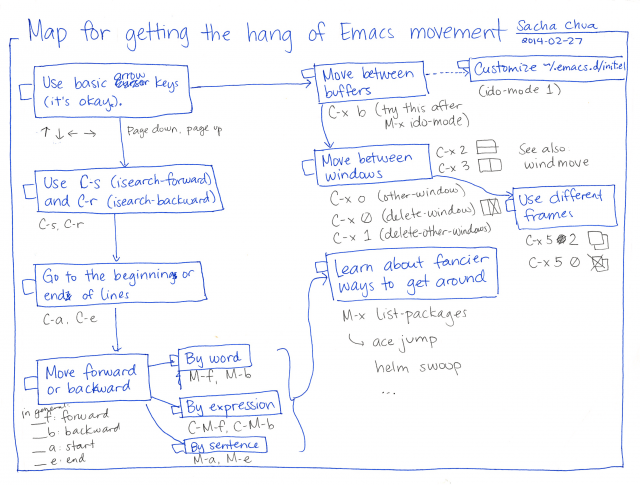 Map for getting the hang of Emacs movement
Sacha Chua
2014-02-27
Use basic arrow keys
(it's okay).
↑ ↓ ← → Page down, page up
Use C-s (isearch-forward)
and C-r (isearch-backward)
C-s, C-r
Go to the beginnings or
ends of lines
C-a, C-e
Move forward
or backward
In general:
__f: forward
__b: backward
__a: start
__e: end
By word
M-f, M-b
By expression
C-M-f, C-M-b
By sentence
M-a, M-e
Move between
buffers
C-x b (try this after
M-x ido-mode)
Customize ~/.emacs.d/init.el
(ido-mode 1)
Move between
windows
C-x 2
C-x 3
See also
windmove
C-x o (other-window)
C-x 0 (delete-window)
C-x 1 (delete-other-windows)
Use different
frames
C-x 5 2
C-x 5 0
Learn about fancier
ways to get around
M-x list-packages
ace jump
helm swoop
...